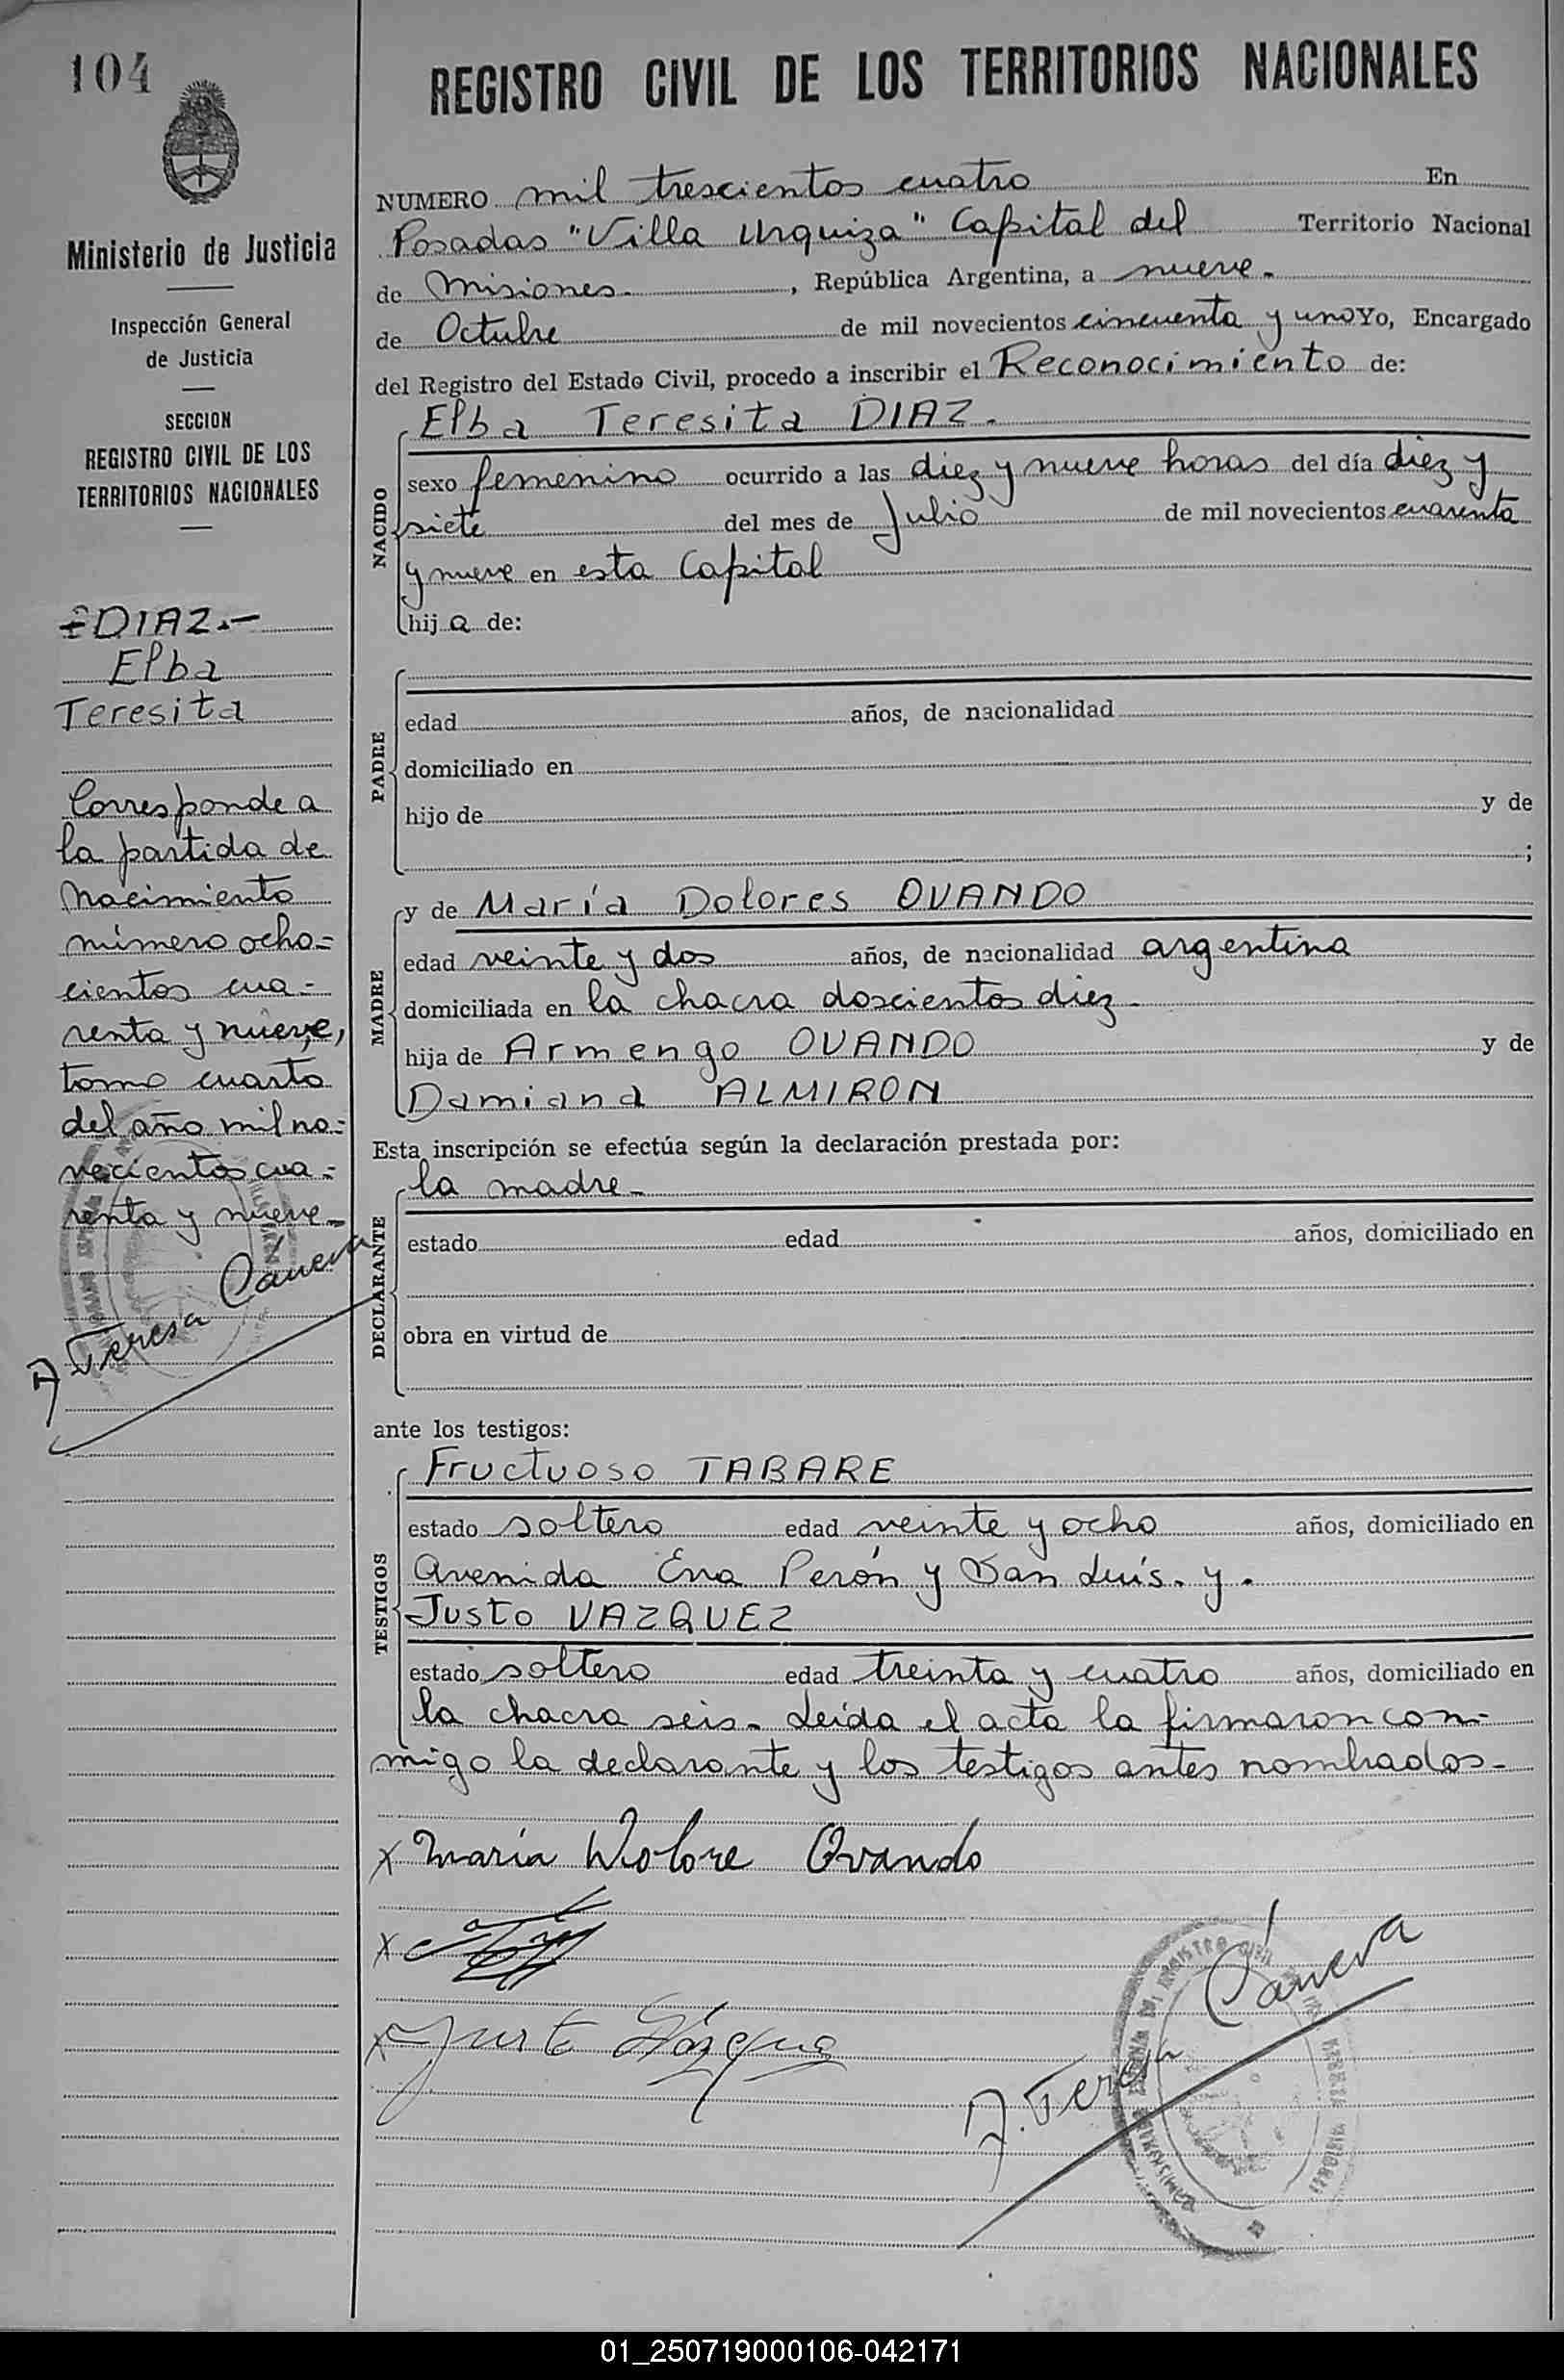 104
Ministerio de Justicia
Inspección General
de Justicia
SECCION
REGISTRO CIVIL DE LOS
TERRITORIOS NACIONALES
DIAZ.-
Elba
Teresita
Corresponde a
la partida de
Nacimiento
número ocho=
cientos cua-
renta y nueve,
tomo cuarto
del año mil no-
vecientos cua-
renta y nueve-
A. Teresa Cáneva
REGISTRO CIVIL DE LOS TERRITORIOS NACIONALES
NUMERO mil trescientos cuatro En
Posadas "Villa Urquiza" Capital del Territorio Nacional
de Misiones. , República Argentina, a nueve.
de Octubre de mil novecientos cincuenta y uno Yo, Encargado
del Registro del Estado Civil, procedo a inscribir el Reconocimiento de:
Elba Teresita DIAZ.
NACIDO
sexo femenino ocurrido a las diez y nueve horas del día diez y
siete del mes de Julio de mil novecientos cuarenta
y nueve en esta Capital
hij a de:
PADRE
edad años, de nacionalidad
domiciliado en
hijo de y de
;
MADRE
y de María Dolores OVANDO
edad veinte y dos años, de nacionalidad argentina
domiciliada en la chacra doscientos diez.
hija de Armengo OVANDO y de
Damiana ALMIRON
Esta inscripción se efectúa según la declaración prestada por:
la madre-
DECLARANTE
estado edad años, domiciliado en
obra en virtud de
ante los testigos:
TESTIGOS
Fructuoso TABARE
estado soltero edad veinte y ocho años, domiciliado en
Avenida Eva Perón y San Luís. y.
Justo VAZQUEZ
estado soltero edad treinta y cuatro años, domiciliado en
la chacra seis- Leída el acta la firmaron con-
migo la declarante y los testigos antes nombrados-
x María Dolore Ovando
x
x Justo Vázque
A. Teresa Cáneva
01_250719000106-042171